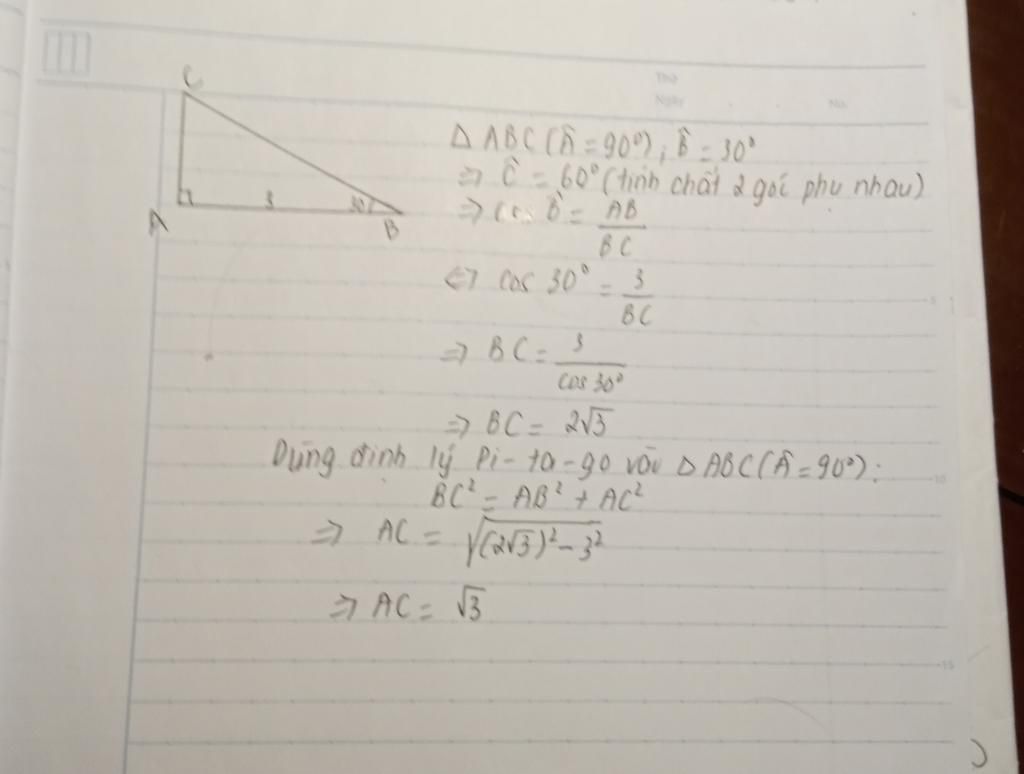 Thứ
Ngày . . No.
C
A
3
30°
B
Δ ABC (Â = 90°), B̂ = 30°
=> Ĉ = 60° (tính chất 2 góc phụ nhau)
=> cos B̂ = AB / BC
<=> cos 30° = 3 / BC
=> BC = 3 / cos 30°
=> BC = 2√3
Dùng định lý Pi-ta-go vào Δ ABC (Â = 90°):
BC² = AB² + AC²
=> AC = √((2√3)² - 3²)
=> AC = √3
5
10
15